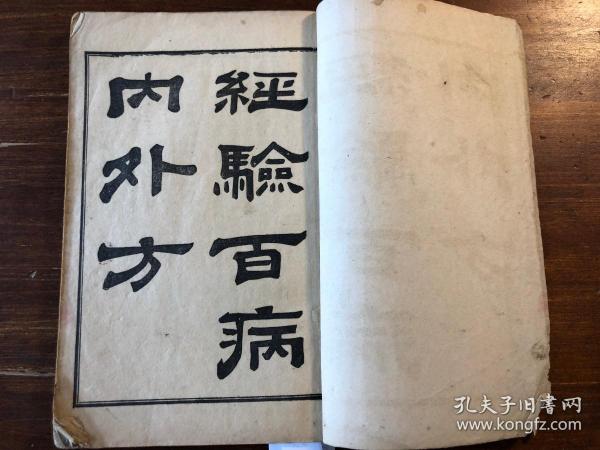 經驗百病
内外方
孔夫子旧書网
www.kongfz.com